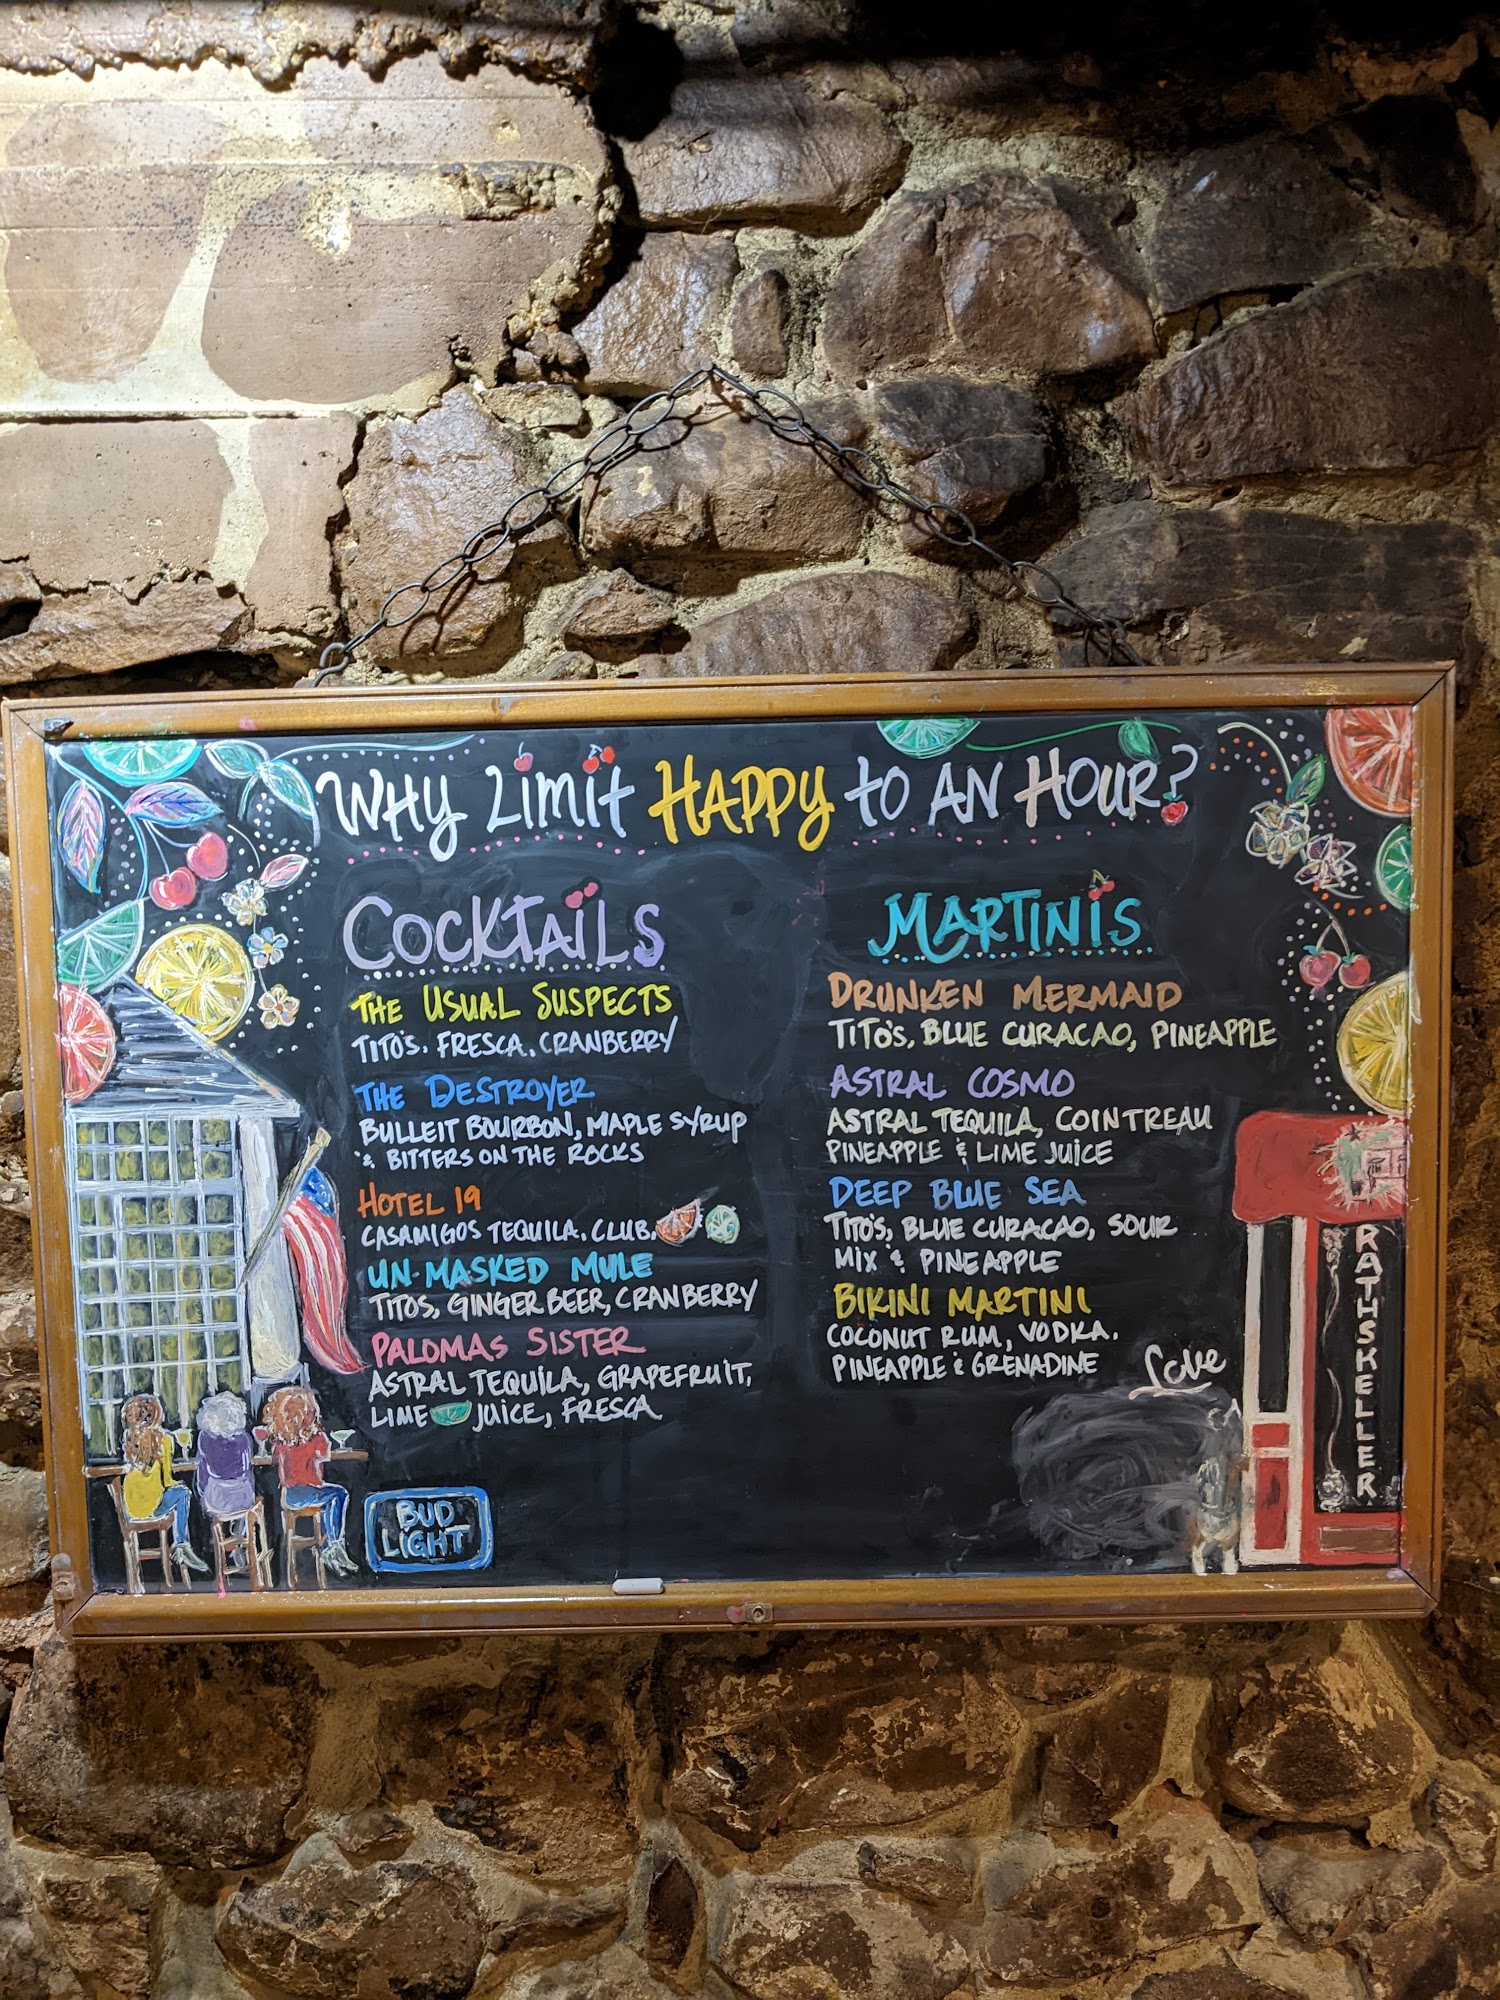 WHY LIMIT HAPPY TO AN HOUR?
COCKTAILS
THE USUAL SUSPECTS
TITO'S. FRESCA. CRANBERRY
THE DESTROYER
BULLEIT BOURBON, MAPLE SYRUP
& BITTERS ON THE ROCKS
HOTEL 19
CASAMIGOS TEQUILA. CLUB.
UN-MASKED MULE
TITOS, GINGER BEER, CRANBERRY
PALOMAS SISTER
ASTRAL TEQUILA, GRAPEFRUIT,
LIME JUICE, FRESCA
BUD
LIGHT
MARTINIS
DRUNKEN MERMAID
TITO'S, BLUE CURACAO, PINEAPPLE
ASTRAL COSMO
ASTRAL TEQUILA, COINTREAU
PINEAPPLE & LIME JUICE
DEEP BLUE SEA
TITO'S, BLUE CURACAO, SOUR
MIX & PINEAPPLE
BIKINI MARTINI
COCONUT RUM, VODKA.
PINEAPPLE & GRENADINE
Love
RATHSKELLER